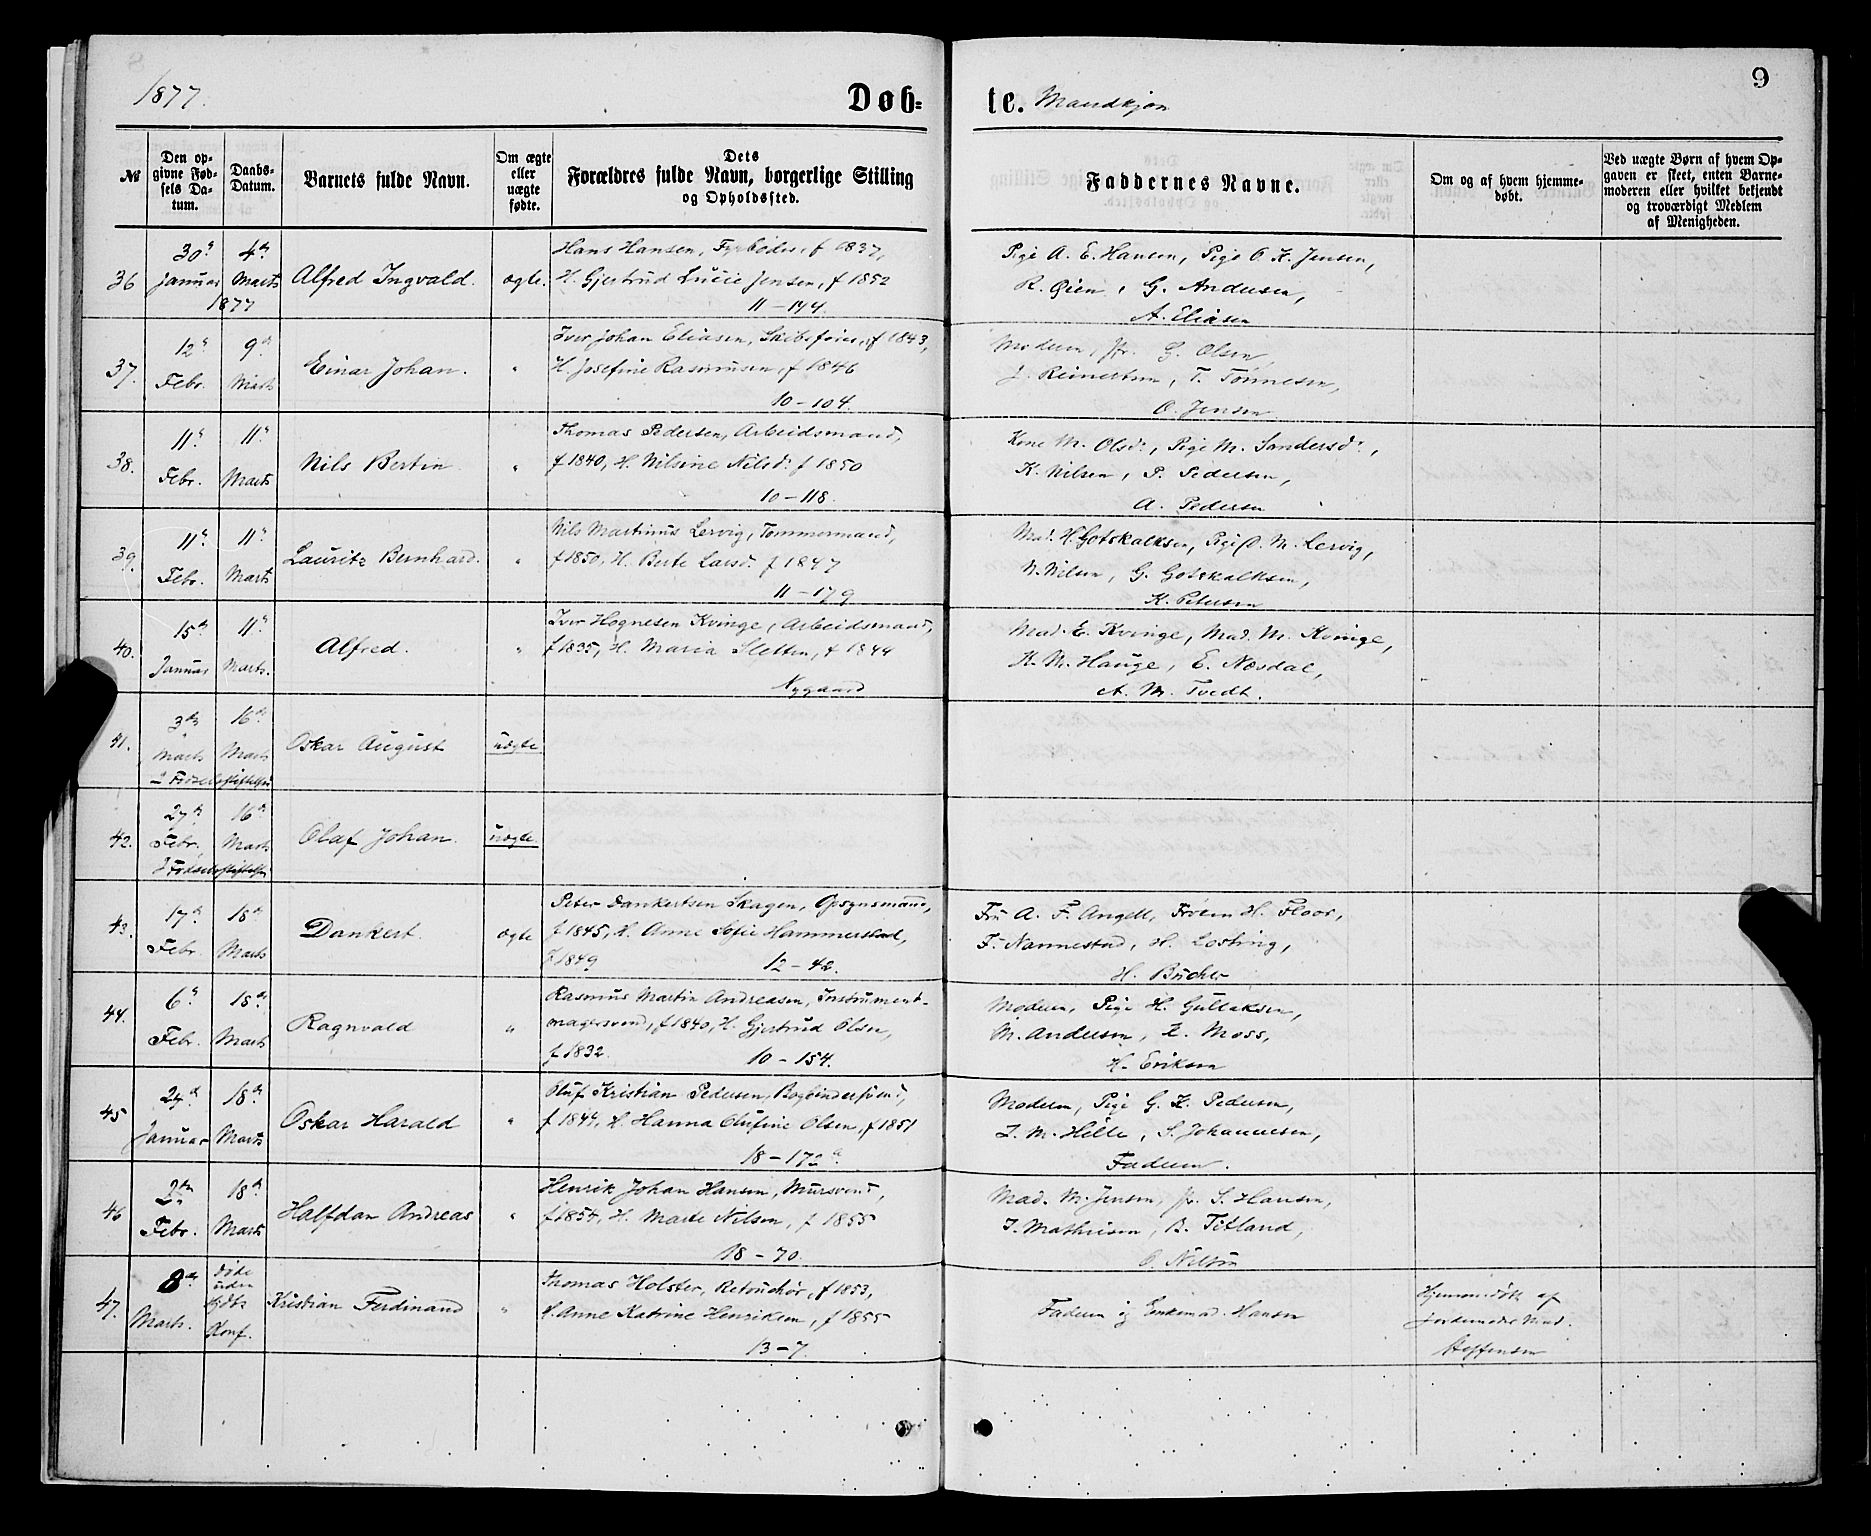 1877.
Døb-
te. Mandkjøn
9
№
Den op-
givne Fød-
sels Da-
tum.
Daabs-
Datum.
Barnets fulde Navn.
Om ægte
eller
uægte
fødte.
Dets
Forældres fulde Navn, borgerlige Stilling
og Opholdssted.
Faddernes Navne.
Om og af hvem hjemme-
døbt.
Ved uægte Børn af hvem Op-
gaven er skeet, enten Barne-
moderen eller hvilket bekjendt
og troværdigt Medlem
af Menigheden.
36
30
Januar
4de
Marts
1877
Alfred Ingvald.
ægte.
Hans Hansen, Fyrbøder, f 1837,
H. Gjertrud Lucie Jensen, f 1852
11-194.
Pige A. E. Hansen, Pige O. K. Jensen,
R. Øien, G. Andersen,
A. Eliasen
37.
12
Febr.
9de
Marts
Einar Johan.
"
Iver Johan Eliasen, Skibsfører, f 1843,
H. Josefine Rasmusen, f 1846
10-104.
Moderen, Jfr. G. Olsen,
J. Reinertsen, T. Tønnesen,
O. Jensen
38.
11
Febr.
11
Marts
Nils Bertin
"
Thomas Pedersen, Arbeidsmand,
f 1840, H. Nilsine Nilsd. f 1850
10-118.
Kone M. Olsd., Pige M. Sandersd.,
K. Nilsen, P. Pedersen,
A. Pedersen
39.
11
Febr.
11
Marts
Lauritz Bernhard.
"
Nils Martinus Lervig, Tømmermand,
f 1850, H. Berte Larsd. f 1847
11-179
Mad. H. Gotskalksen, Pige M. Lervig,
N. Nilsen, G. Gotskalksen,
K. Petersen
40.
15de
Januar
11
Marts.
Alfred.
"
Iver Hognesen Kvinge, Arbeidsmand,
f 1835, H. Maria Sletten, f 1844
Nygaard
Mad. E. Kvinge, Mad. M. Kvinge,
K. M. Hauge, E. Næsdal,
A. M. Tvedt.
41.
3de
Marts
16de
Marts
I Fødselsstiftelsen
Oskar August
uægte
42.
27de
Febr.
16de
Marts
I Fødselsstiftelsen
Olaf Johan.
uægte.
43.
17de
Febr.
18de
Marts
Dankert.
ægte
Peter Dankertsen Skagen, Opsynsmand,
f 1845, H. Anne Sofie Hammerstad,
f 1849
12-42.
Fru A. F. Angell, Frøken H. Floor,
F. Nannestad, H. Losting,
H. Bücher
44.
6
Febr.
18de
Marts
Ragnvald
"
Rasmus Martin Andreasen, Instrument-
magersvend, f 1840, H. Gjertrud Olsen,
f 1832.
10-154.
Moderen, Pige H. Gullaksen,
M. Andersen, Z. Moss,
H. Eriksen
45
24
Januar
18de
Marts
Oskar Harald
"
Oluf Kristian Pedersen, Bogbindersvend,
f 1844, H. Hanna Olufine Olsen, f 1851
18-172a.
Moderen, Pige G. K. Pedersen,
J. M. Hille, S. Johannesen,
Faderen.
46
2den
Febr.
18de
Marts
Halfdan Andreas
"
Henrik Johan Hansen, Mursvend,
f 1854, H. Marte Nilsen, f 1855
18-70.
Mad. M. Jensen, Jfr. S. Hansen,
J. Mathiesen, B. Titland,
O. Nilsen
47.
8de
Marts.
døde
uden
Konf.
Kristian Ferdinand
"
Thomas Holster, Retouchør, f 1853,
H. Anne Katrine Henriksen, f 1855
13-7.
Faderen og Enkemad. Hansen
Hjemmedøbt af
Jordemoder Mad.
Steffensen